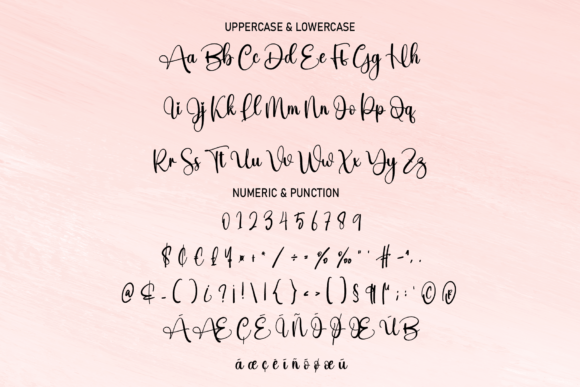 UPPERCASE & LOWERCASE
Aa Bb Cc Dd Ee Ff Gg Hh
Ii Jj Kk Ll Mm Nn Oo Pp Qq
Rr Ss Tt Uu Vv Ww Xx Yy Zz
NUMERIC & PUNCTION
0 1 2 3 4 5 6 7 8 9
$ ¢ € £ ¥ × + * / ÷ = % ‰ " ' # - ~ , .
@ & _ ( ) ¿ ? ¡ ! \ | { } < > [ ] § ¶ ; : ' © ®
á æ ç è î ñ ô ø œ ü